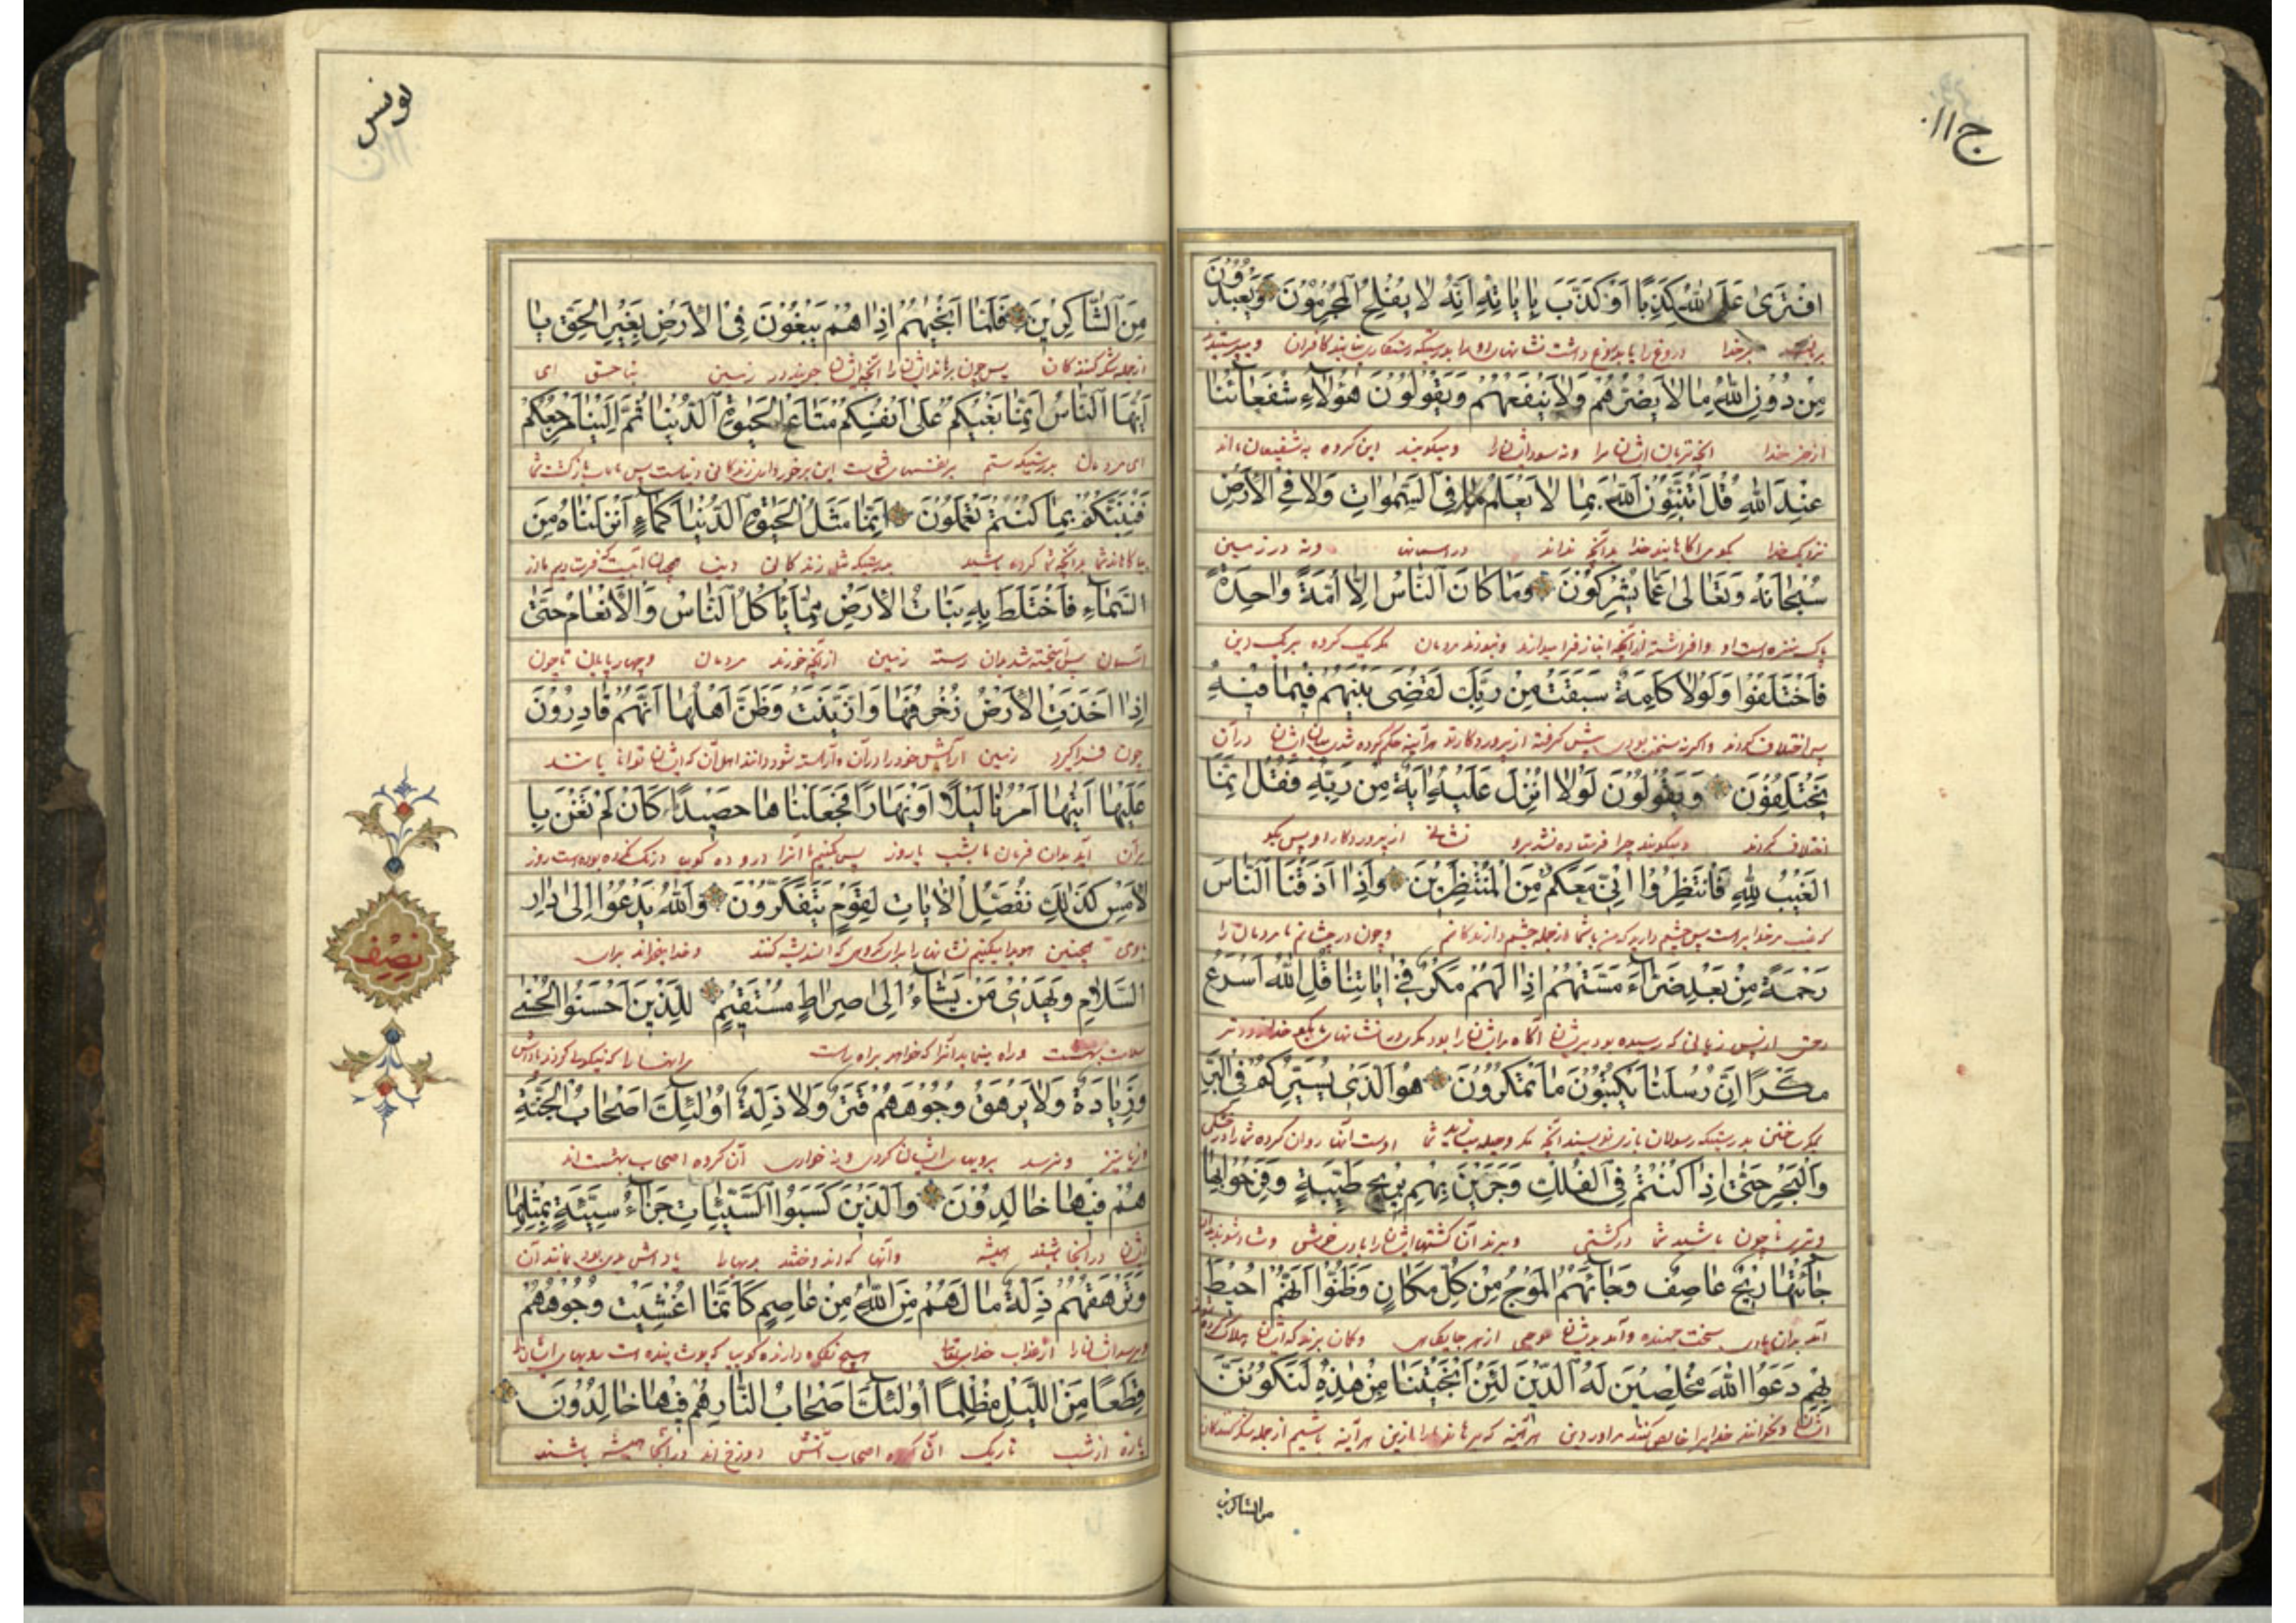 ج ۱۱
افْتَرَىٰ عَلَى اللَّهِ كَذِبًا اَوْ كَذَّبَ بِاٰيَاتِهِ اِنَّهُ لَا يُفْلِحُ الْمُجْرِمُوْنَ وَيَعْبُدُوْنَ
بر خدا دروغ را یا بدروغ داشت نشانهای او را بدرستیکه رستگاری نیابند کافران و میپرستند
مِنْ دُوْنِ اللَّهِ مَا لَا يَضُرُّهُمْ وَلَا يَنْفَعُهُمْ وَيَقُوْلُوْنَ هٰؤُلَاءِ شُفَعَاؤُنَا
از جز خدا آنچه زیان ایشانرا و نه سود ایشانرا و میگویند این گروه شفیعان ما اند
عِنْدَ اللَّهِ قُلْ اَتُنَبِّئُوْنَ اللَّهَ بِمَا لَا يَعْلَمُ فِي السَّمٰوَاتِ وَلَا فِي الْاَرْضِ
نزدیک خدا بگو مر آگاهانید خدا بدانچه نداند در آسمانها و نه در زمین
سُبْحَانَهُ وَتَعَالٰى عَمَّا يُشْرِكُوْنَ وَمَا كَانَ النَّاسُ اِلَّا اُمَّةً وَاحِدَةً
پاک و منزه است او و افراشته از آنچه انباز فرا میدارند و نبودند مردمان مگر یک گروه بر یک دین
فَاخْتَلَفُوْا وَلَوْلَا كَلِمَةٌ سَبَقَتْ مِنْ رَبِّكَ لَقُضِيَ بَيْنَهُمْ فِيْمَا فِيْهِ
پس اختلاف کردند و اگر نه سخنی بودی پیش گرفته از پروردگار تو هر آینه حکم کرده شدی میان ایشان در آن
يَخْتَلِفُوْنَ وَيَقُوْلُوْنَ لَوْلَا اُنْزِلَ عَلَيْهِ اٰيَةٌ مِنْ رَبِّهِ فَقُلْ اِنَّمَا
اختلاف کردند و میگویند چرا فرستاده نشد برو نشانی از پروردگار او پس بگو
الْغَيْبُ لِلّٰهِ فَانْتَظِرُوْا اِنِّيْ مَعَكُمْ مِنَ الْمُنْتَظِرِيْنَ وَاِذَا اَذَقْنَا النَّاسَ
که غیب مر خدایراست پس چشم دارید که من با شما از جمله چشم دارندگانم و چون در چشانیم ما مردمان را
رَحْمَةً مِنْ بَعْدِ ضَرَّاءَ مَسَّتْهُمْ اِذَا لَهُمْ مَكْرٌ فِيْ اٰيَاتِنَا قُلِ اللَّهُ اَسْرَعُ
رحمتی از پس زیانی که رسیده بود بریشان آنگاه مر ایشانرا بود مکری در نشانهای ما بگو خدا زودتر
مَكْرًا اِنَّ رُسُلَنَا يَكْتُبُوْنَ مَا تَمْكُرُوْنَ هُوَ الَّذِيْ يُسَيِّرُكُمْ فِي الْبَرِّ
بدرستیکه رسولان ما می نویسند آنچه مکر و حیله شما اوست آنکه روان کرده شما را در خشکی
وَالْبَحْرِ حَتّٰى اِذَا كُنْتُمْ فِي الْفُلْكِ وَجَرَيْنَ بِهِمْ بِرِيْحٍ طَيِّبَةٍ وَفَرِحُوْا بِهَا
و تری تا چون باشید شما در کشتی و برند آن کشتیها ایشانرا بباد خوش و شاد شوند بدان
جَاءَتْهَا رِيْحٌ عَاصِفٌ وَجَاءَهُمُ الْمَوْجُ مِنْ كُلِّ مَكَانٍ وَظَنُّوْا اَنَّهُمْ اُحِيْطَ
آید بدان بادی سخت جهنده و آید بدیشان موجی از هر جایگاهی و گمان برند که ایشان هلاک کرده شوند
بِهِمْ دَعَوُا اللَّهَ مُخْلِصِيْنَ لَهُ الدِّيْنَ لَئِنْ اَنْجَيْتَنَا مِنْ هٰذِهِ لَنَكُوْنَنَّ
ایشان و بخوانند خدا را خالص کنند مر او را دین هر آینه که برهاند ما را ازین هر آینه باشیم از جمله شکر کنندگان
من الشاکرین
یونس
مِنَ الشَّاكِرِيْنَ فَلَمَّا اَنْجٰيهُمْ اِذَا هُمْ يَبْغُوْنَ فِي الْاَرْضِ بِغَيْرِ الْحَقِّ يَا
از جمله شکر کنندگان پس چون برهاند ایشان را آنگه ایشان جویند در زمین بناحق ای
اَيُّهَا النَّاسُ اِنَّمَا بَغْيُكُمْ عَلٰى اَنْفُسِكُمْ مَتَاعَ الْحَيٰوةِ الدُّنْيَا ثُمَّ اِلَيْنَا مَرْجِعُكُمْ
ای مردمان بدرستیکه ستم بر نفسهای شماست این برخورداری زندگانی دنیاست پس بماست بازگشت شما
فَنُنَبِّئُكُمْ بِمَا كُنْتُمْ تَعْمَلُوْنَ اِنَّمَا مَثَلُ الْحَيٰوةِ الدُّنْيَا كَمَاءٍ اَنْزَلْنَاهُ مِنَ
شما بدانچه شما کرده باشید بدرستیکه مثل زندگانی دنیا همچون آبیست که فرستادیم ما از
السَّمَاءِ فَاخْتَلَطَ بِهِ نَبَاتُ الْاَرْضِ مِمَّا يَأْكُلُ النَّاسُ وَالْاَنْعَامُ حَتّٰى
آسمان پس آمیخته شد بدان رسته زمین از آنچه خورند مردمان و چهارپایان تا چون
اِذَا اَخَذَتِ الْاَرْضُ زُخْرُفَهَا وَازَّيَّنَتْ وَظَنَّ اَهْلُهَا اَنَّهُمْ قَادِرُوْنَ
چون فرا گیرد زمین آرایش خود را در آن و آراسته شود و دانند اهل آن که ایشان توانا باشند
عَلَيْهَا اَتٰيهَا اَمْرُنَا لَيْلًا اَوْ نَهَارًا فَجَعَلْنَاهَا حَصِيْدًا كَاَنْ لَمْ تَغْنَ بِا
بر آن آید بدان فرمان ما بشب یا روز پس کنیم ما آنرا دروده گویی درنگ نکرده بوده است روز
لْاَمْسِ كَذٰلِكَ نُفَصِّلُ الْاٰيَاتِ لِقَوْمٍ يَتَفَكَّرُوْنَ وَاللَّهُ يَدْعُوْا اِلٰى دَارِ
همچنین هویدا میکنیم نشانها را برای گروهی که اندیشه کنند و خدا میخواند برای
السَّلَامِ وَيَهْدِيْ مَنْ يَشَاءُ اِلٰى صِرَاطٍ مُسْتَقِيْمٍ لِلَّذِيْنَ اَحْسَنُوا الْحُسْنٰى
و راه مینماید آنرا که خواهد براه راست مر آنها را که نیکویی کردند پاداش
وَزِيَادَةٌ وَلَا يَرْهَقُ وُجُوْهَهُمْ قَتَرٌ وَلَا ذِلَّةٌ اُولٰئِكَ اَصْحَابُ الْجَنَّةِ
و نرسد برویهای ایشان گردی و نه خواری آن گروه اصحاب بهشت اند
هُمْ فِيْهَا خَالِدُوْنَ وَالَّذِيْنَ كَسَبُوا السَّيِّئَاتِ جَزَاءُ سَيِّئَةٍ بِمِثْلِهَا
ایشان در آنجا باشند همیشه و آنها که اندوختند بدیها را پاداش بدی بود مانند آن
وَتَرْهَقُهُمْ ذِلَّةٌ مَا لَهُمْ مِنَ اللَّهِ مِنْ عَاصِمٍ كَاَنَّمَا اُغْشِيَتْ وُجُوْهُهُمْ
و برسد ایشانرا از عذاب خدای تعالی هیچ نگه دارنده گویی که پوشیده است رویهای ایشان را
قِطَعًا مِنَ اللَّيْلِ مُظْلِمًا اُولٰئِكَ اَصْحَابُ النَّارِ هُمْ فِيْهَا خَالِدُوْنَ
پاره از شب تاریک آن گروه اصحاب آتش دوزخ اند در آنجا همیشه باشند
نصف